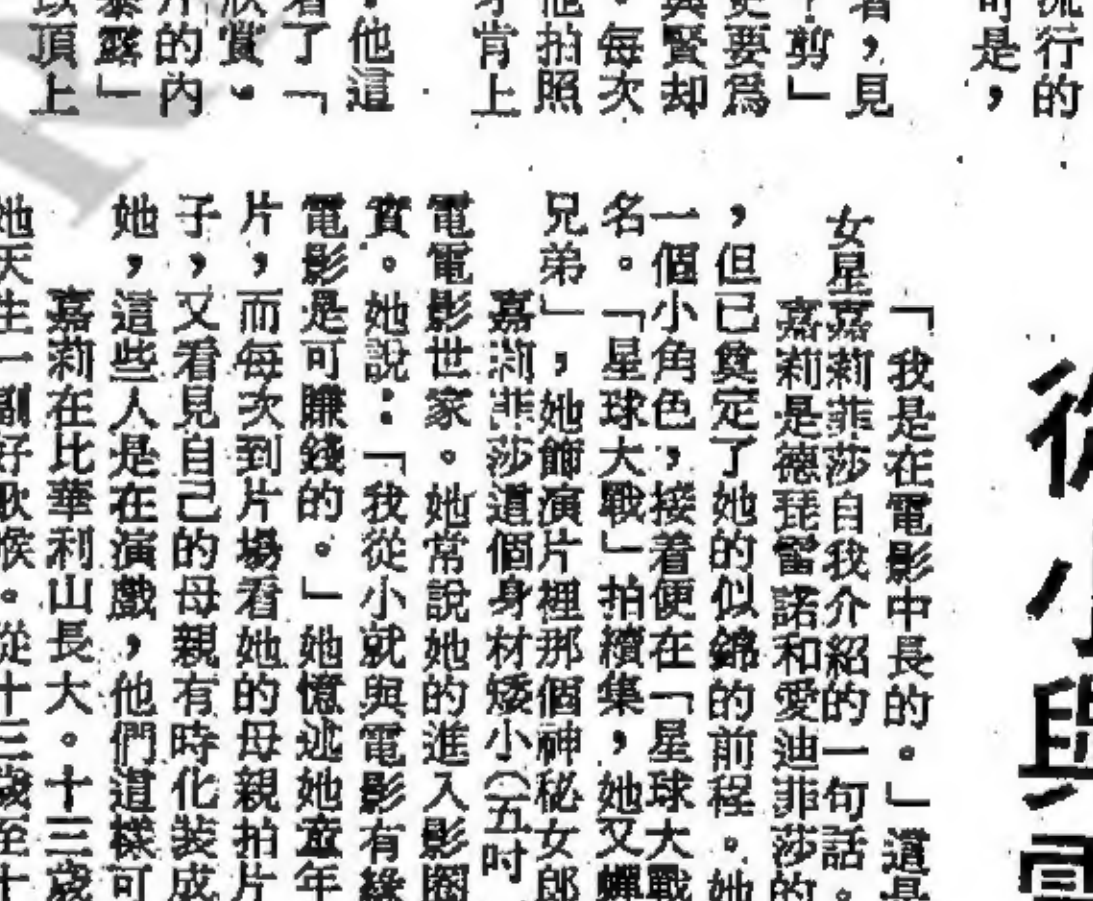 從小與電
流行的
可是，
着，見
？剪」
更要爲
與賢却
。每次
他拍照
才肯上
他這
看了「
欣賞。
片的內
暴露」
以頂上
「我是在電影中長的。」這是
女星嘉莉菲莎自我介紹的一句話。
嘉莉是德琵雷諾和愛迪菲莎的
，但已奠定了她的似錦的前程。她
一個小角色，接着便在「星球大戰
名。「星球大戰」拍續集，她又蟬
兄弟」，她飾演片裡那個神秘女郎
嘉莉菲莎這個身材矮小（五呎
電電影世家。她常說她的進入影圈
實。她說：「我從小就與電影有緣
電影是可賺錢的。」她憶述她童年
片，而每次到片場看她的母親拍片
子，又看見自己的母親有時化裝成
她，這些人是在演戲，他們這樣可
嘉莉在比華利山長大。十三歲
她天生一副好歌喉。從十三歲至十